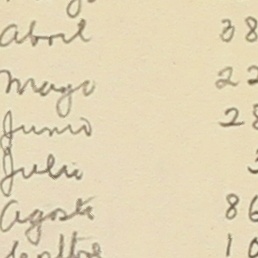 Abril 38
Mayo 22
Junio 28
Julio 3
Agosto 86
10